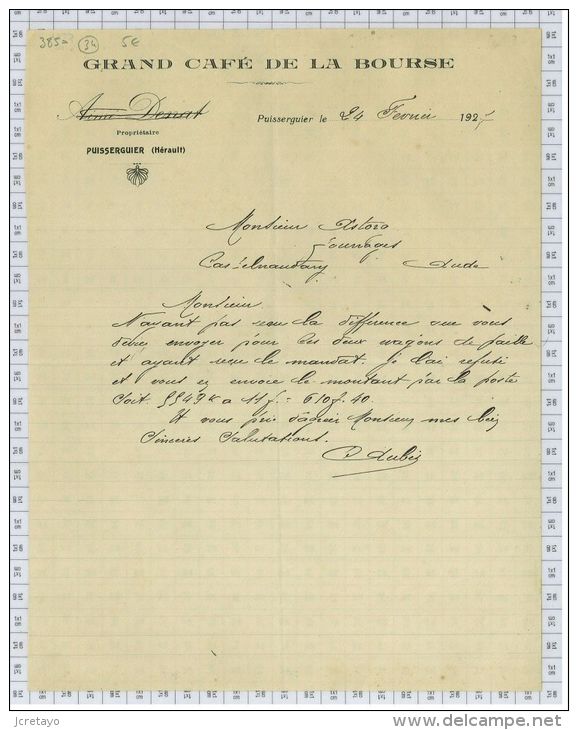 385a 34 5€
GRAND CAFÉ DE LA BOURSE
Aimé Denat
Propriétaire
PUISSERGUIER (Hérault)
Puisserguier le 24 Fevrier 192
Monsieur Astora
Fourrages
Castelnaudary Aude
Monsieur
N'ayant pas reçu la difference que vous
devez envoyer pour les deux wagons de paille
et ayant reçu le mandat. Je l'ai refusé
et vous en envoie le montant par la poste
soit 5549 k a 11 f = 610 f. 40.
Et vous prie d'agréer Monsieur mes
Sinceres Salutations.
jcretayo
www.delcampe.net